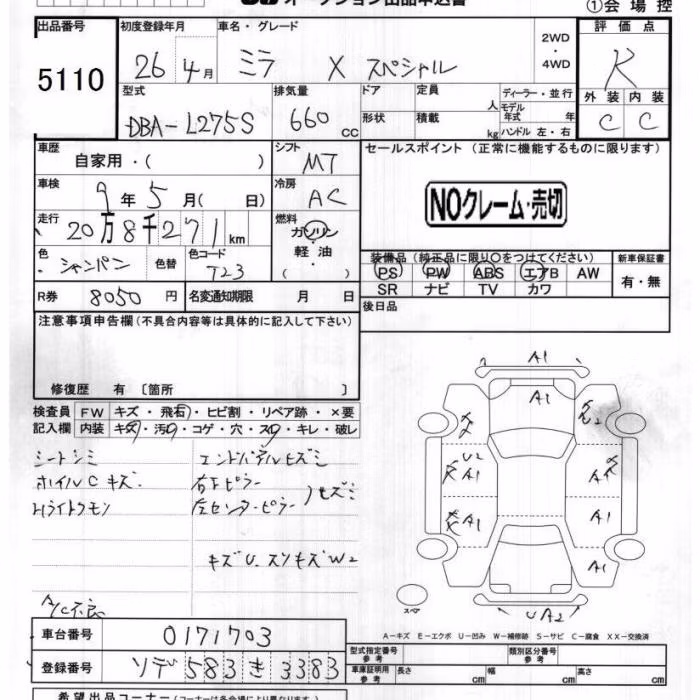 オークション出品申込書
①会場控
出品番号 初度登録年月 車名・グレード 2WD ・ 4WD 評価点
5110 26年 4月 ミラ X スペシャル R
型式 排気量 ドア 定員 人 ディーラー・並行 外装 内装
DBA-L275S 660 cc 形状 積載 kg モデル年式 年 ハンドル 左・右 C C
車歴 自家用・( ) シフト MT セールスポイント (正常に機能するものに限ります)
車検 9年 5月( 日) 冷房 AC NOクレーム・売切
走行 20万8千271km 燃料 ガソリン 軽油 ・ ( )
色 シャンパン 色替 色コード T23
装備品 (純正品に限り○をつけてください) 新車保証書
PS PW ABS エアB AW 有・無
SR ナビ TV カワ
R券 8050円 名変通知期限 月 日 後日品
注意事項申告欄 (不具合内容等は具体的に記入して下さい)
修復歴 有 〔箇所 〕
検査員 FW キズ・飛石・ヒビ割・リペア跡・×要
記入欄 内装 キズ・汚れ・コゲ・穴・スレ・キレ・破レ
シートシミ
ホイルCキズ
Hライトクモリ
右Fピラー
左センターピラー
キズU.スリキズW2
A/C不良
A1
A1
U2
A1
A1
A1
A1
A1
UA2
スペア
A-キズ E-エクボ U-凹み W-補修跡 S-サビ C-腐食 XX-交換済
車台番号 0171703
登録番号 ソデ 583 き 3383
型式指定番号 参考 類別区分番号 参考
車庫証明用 参考 長さ cm 幅 cm 高さ cm
希望出品コーナー (コーナーは各会場により異なります。)